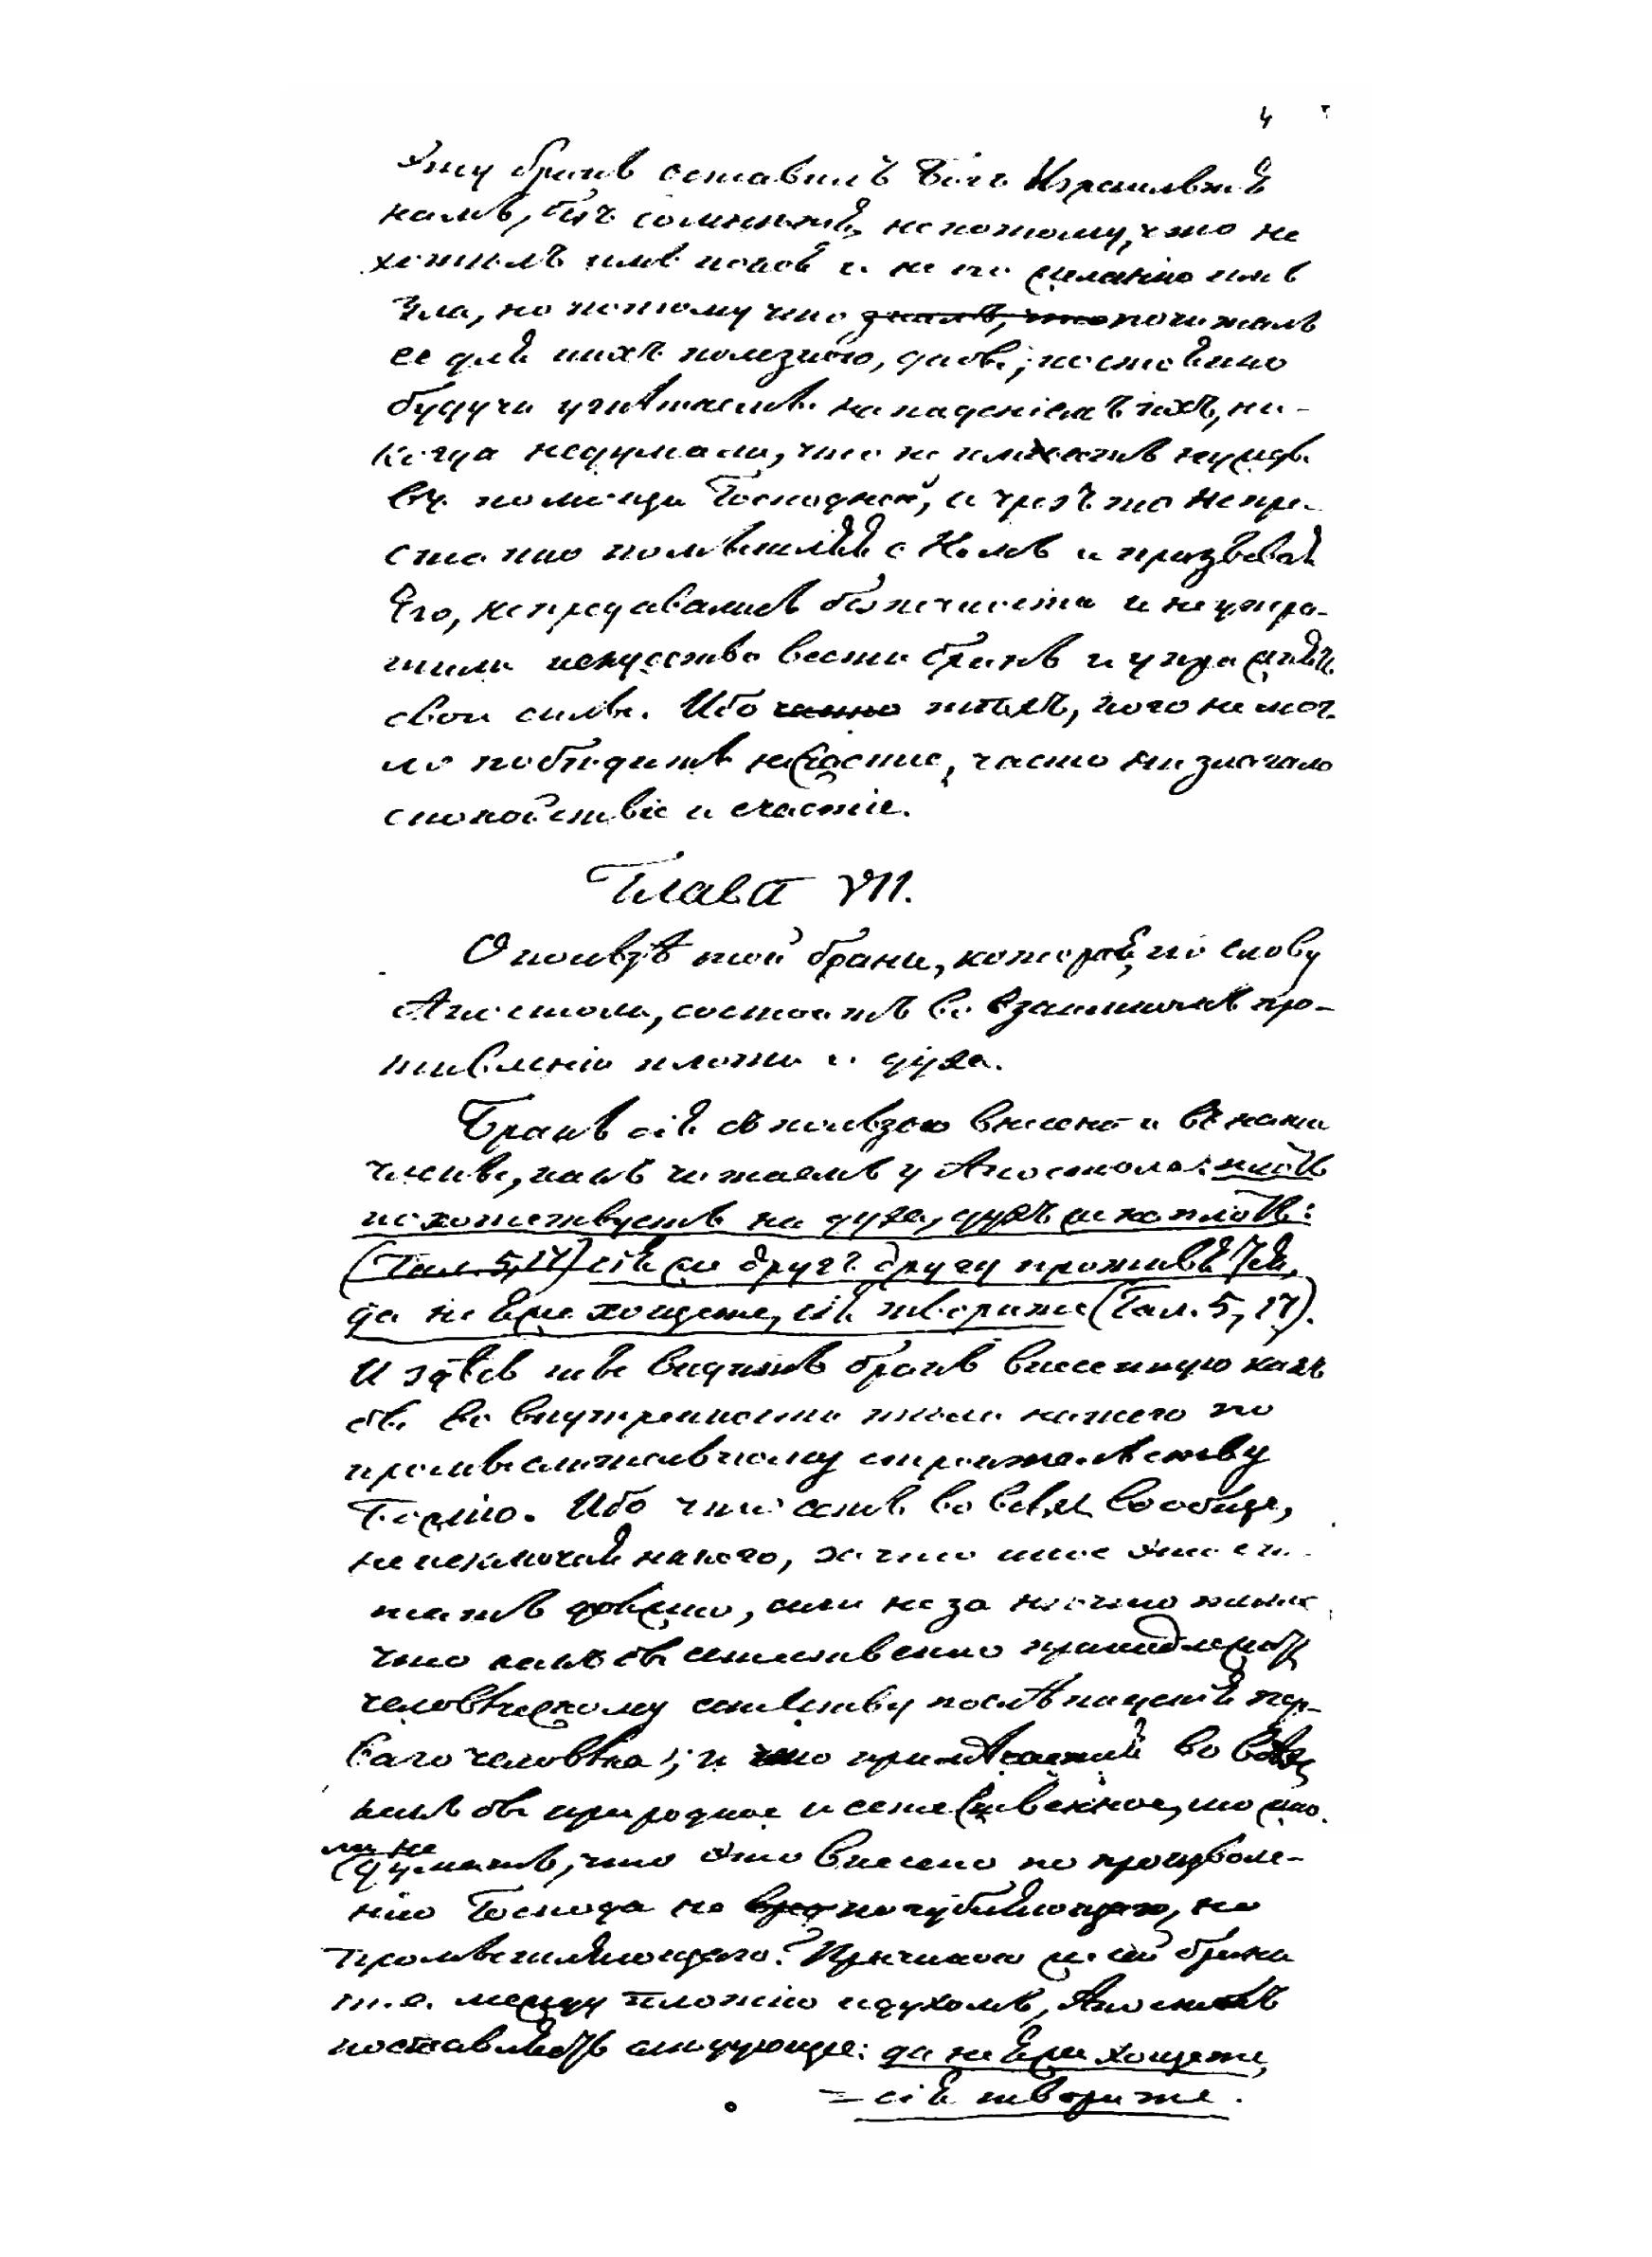 4
Эту брань оставилъ Богъ Израильтя-
намъ, безъ сомнѣнія, не потому, что не
хотѣлъ имъ покоя и не по желанію имъ
зла, но потому что ~~зналъ, что~~ почиталъ
ее для нихъ полезною, дабы, постоянно
будучи угнѣтаемы нападеніемъ ихъ, ни-
когда недумали, что не имѣютъ нужды
въ помощи Господней, и чрезъ то непре-
станно помышляя о Немъ и призывая
Его, непредавались безпечности и неутра-
тили искусство вести брань и упражнять
свои силы. Ибо ~~часто~~ тѣхъ, кого не мог-
ло побѣдить несчастіе, часто низлагало
спокойствіе и счастіе.
Глава VII.
О пользѣ той брани, которая, по слову
Апостола, состоитъ во взаимномъ про-
тивленіи плоти и духа.
Брань сія съ пользою внесена и въ наши
члены, какъ читаемъ у Апостола: плоть
похотствуетъ на духа, духъ же на плоть:
~~(Гал. 5, 17)~~ сія же другъ другу противятся,
да не яже хощете, сія творите (Гал. 5, 17).
И здѣсь мы видимъ брань внесенную какъ
бы во внутренность тѣла нашего по
промыслительному строительству
Божію. Ибо что есть во всѣхъ вообще,
не исключая никого, за что иное это счи-
тать должно, если не за нѣчто такое,
что какъ бы естественно принадлежитъ
человѣческому естеству послѣ паденія пер-
ваго человѣка; и что примѣчаемъ во всѣхъ
какъ бы природное и естественное, то мо-
ли не
думать, что это внесено по произволе-
нію Господа не ~~вре~~ погубляющаго, но
промышляющаго? Причиною же сей брани
т. е. между плотію и духомъ, Апостолъ
поставляетъ слѣдующее: да не яже хощете,
= сія творите.